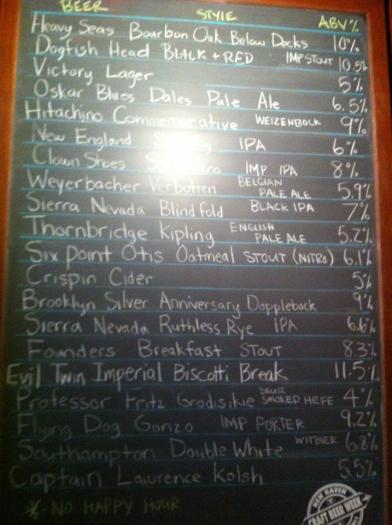 BEER STYLE ABV%
Heavy Seas Bourbon Oak Below Decks 10%
Dogfish Head BLACK + RED IMP STOUT 10.5%
Victory Lager 5%
Oskar Blues Dales Pale Ale 6.5%
Hitachino Commemorative WEIZENBOCK 9%
New England IPA 6%
Clown Shoes IMP IPA 8%
Weyerbacher Verboten BELGIAN PALE ALE 5.9%
Sierra Nevada Blindfold BLACK IPA 7%
Thornbridge Kipling ENGLISH PALE ALE 5.2%
Six Point Otis Oatmeal STOUT (NITRO) 6.1%
Crispin Cider 5%
Brooklyn Silver Anniversary Doppleback 9%
Sierra Nevada Ruthless Rye IPA 6.6%
Founders Breakfast STOUT 8.3%
Evil Twin Imperial Biscotti Break 11.5%
Professor Fritz Grodisikie SMOKED HEFE 4%
Flying Dog Gonzo IMP PORTER 9.2%
Southampton Double White WITBIER 6.8%
Captain Lawrence Kolsh 5.5%
* - NO HAPPY HOUR
NEW HAVEN
BEER WEEK